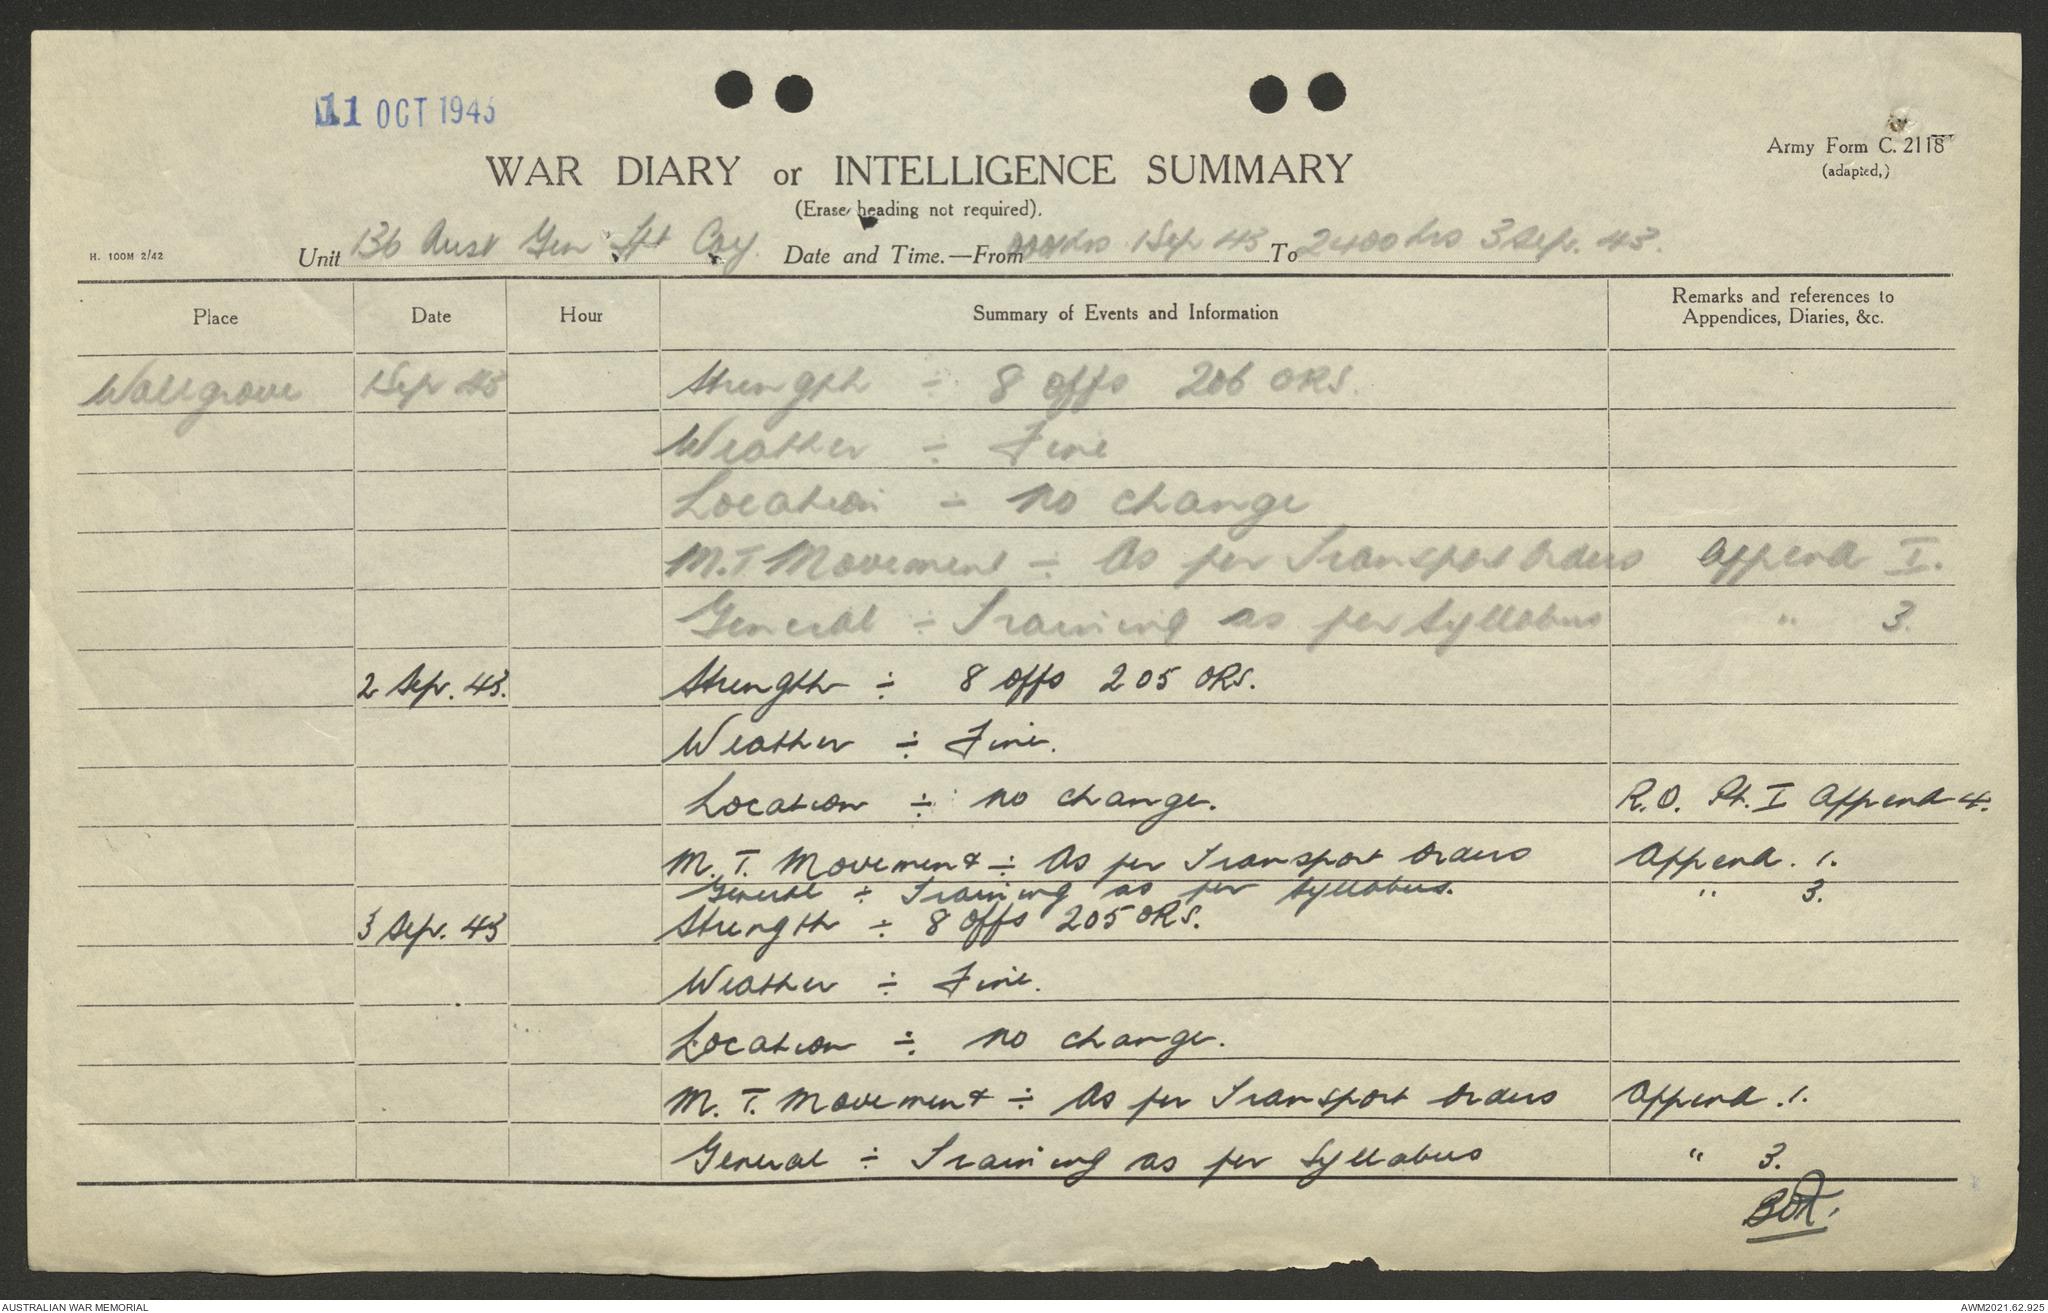 11 OCT 1943
Army Form C. 2118
(adapted,)
WAR DIARY or INTELLIGENCE SUMMARY
(Erase heading not required).
H. 100M 2/42
Unit 136 Aust Gen Tpt Coy. Date and Time.—From 0001hrs 1 Sep 43 To 2400 hrs 3 Sep. 43.
Place Date Hour Summary of Events and Information Remarks and references to Appendices, Diaries, &c.
Wallgrove 1 Sep 43 Strength ÷ 8 offs 206 ORS.
Weather ÷ Fine
Location ÷ no change
M.T. Movement ÷ As per Transport Orders Append I.
General ÷ Training as per Syllabus " 3.
2 Sep. 43. Strength ÷ 8 offs 205 ORS.
Weather ÷ Fine.
Location ÷ no change. R.O. Pt. I Append 4.
M. T. Movement ÷ As per Transport Orders Append. 1.
General ÷ Training as per Syllabus. " 3.
3 Sep. 43 Strength ÷ 8 offs 205 ORS.
Weather ÷ Fine.
Location ÷ no change.
M. T. Movement ÷ As per Transport Orders Append. 1.
General ÷ Training as per Syllabus " 3.
AUSTRALIAN WAR MEMORIAL
AWM2021.62.925